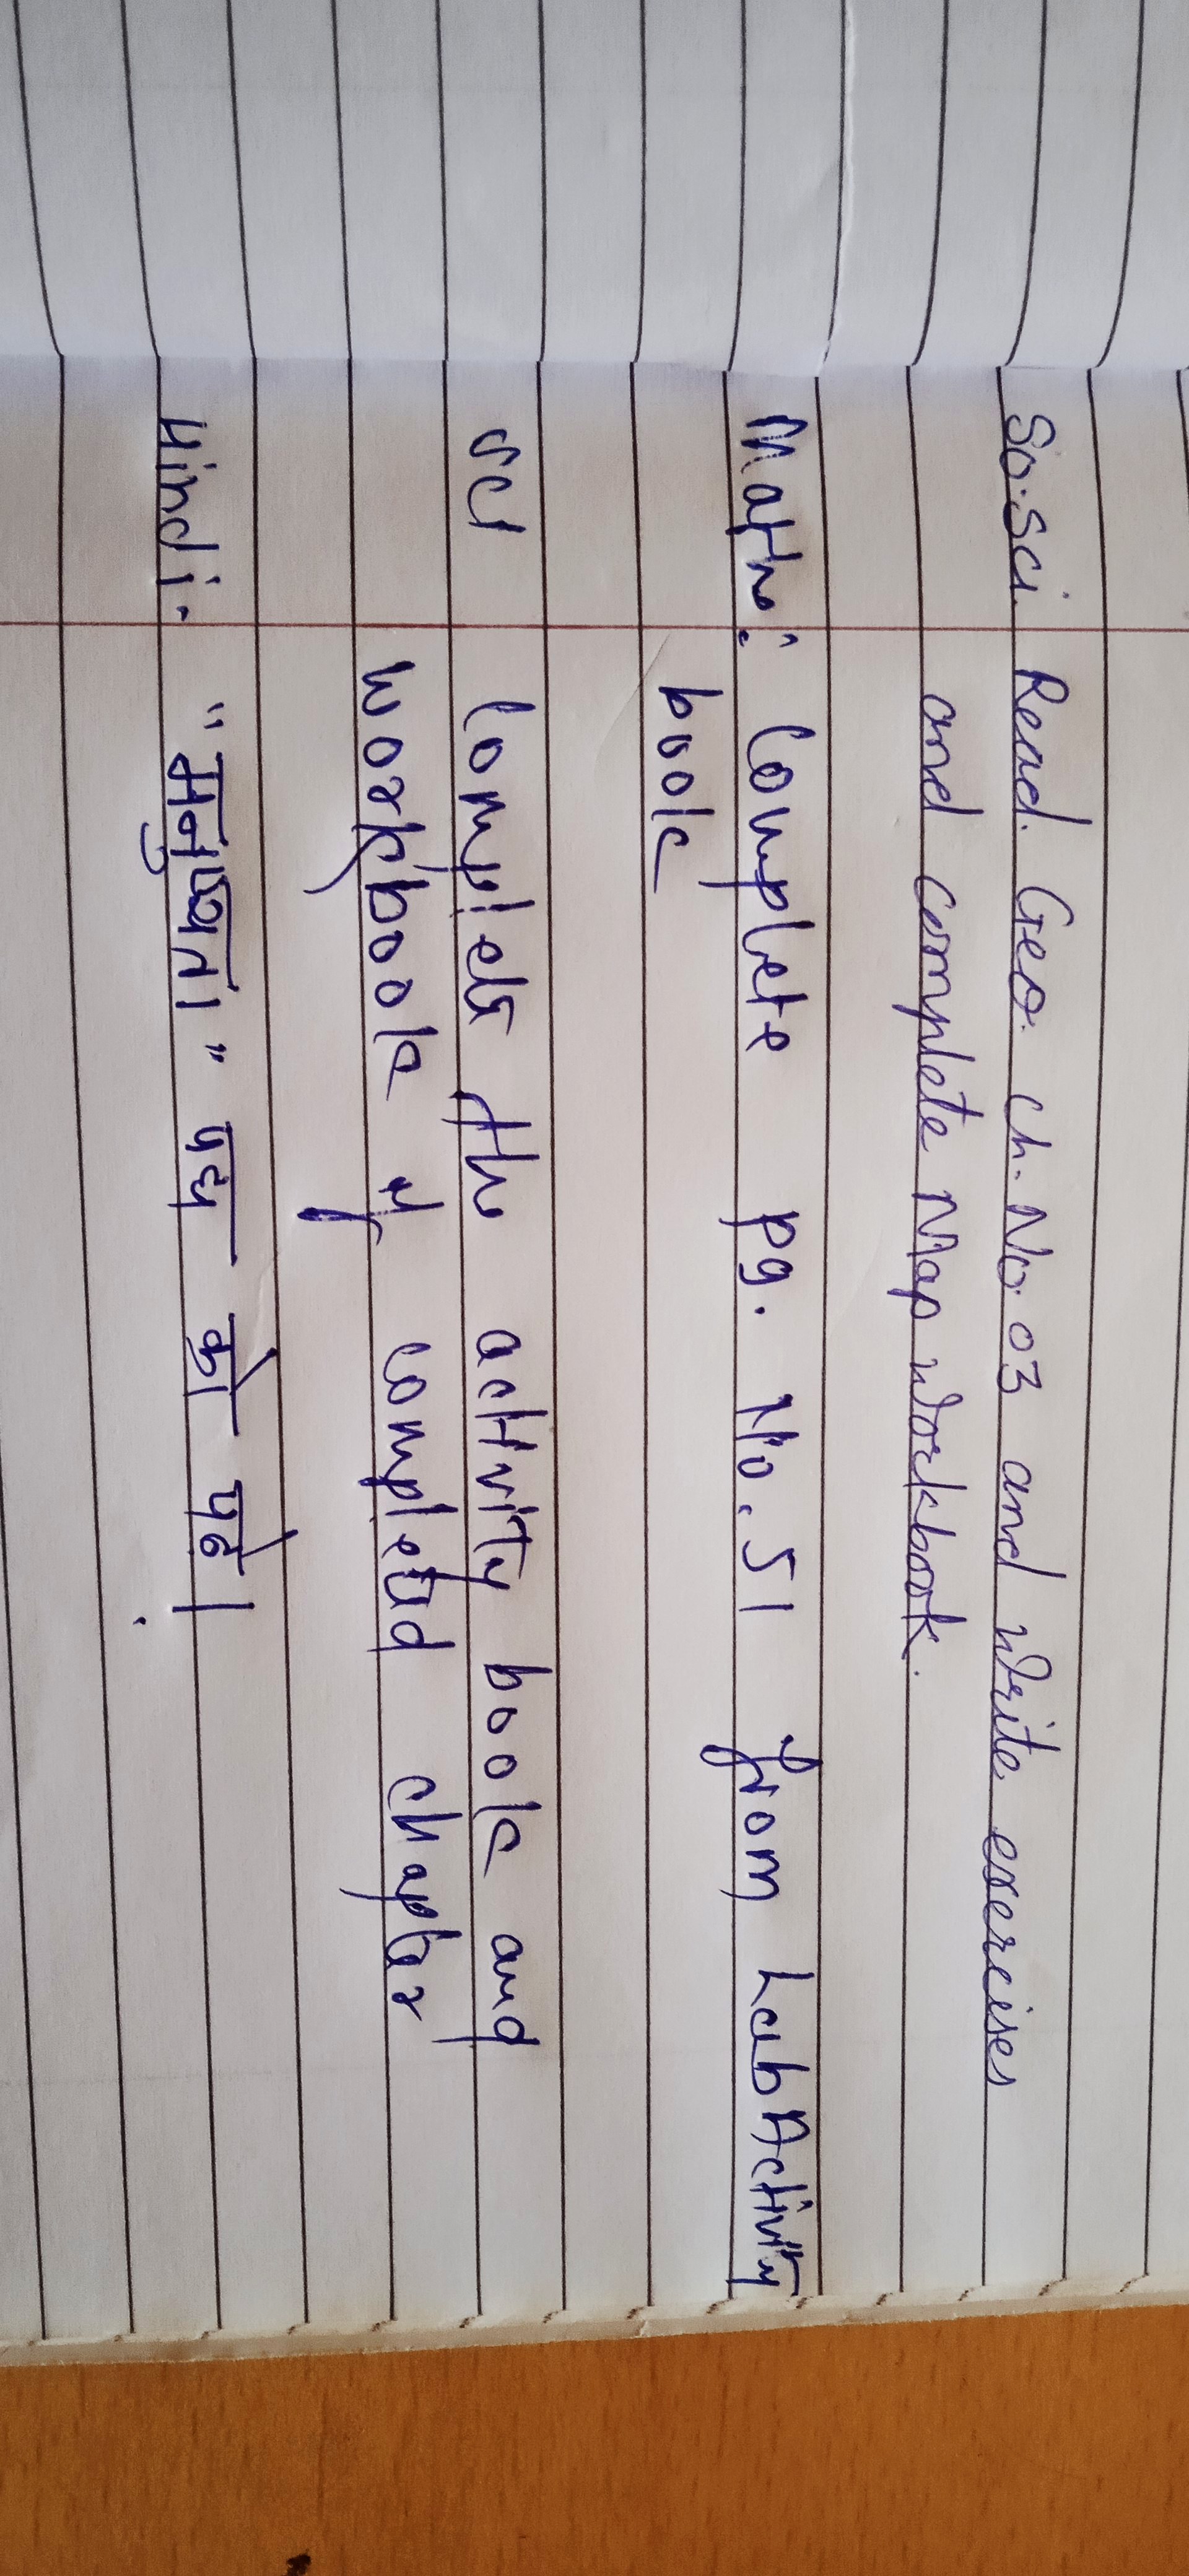 So.Sci. Read. Geo. Ch. No. 03 and write exercises
and complete Map workbook.
Maths: Complete pg. No. 51 from Lab Activity
book
Sci Complete the activity book and
workbook of completed chapter
Hindi. "मनुष्यता" पद्य को पढ़े।